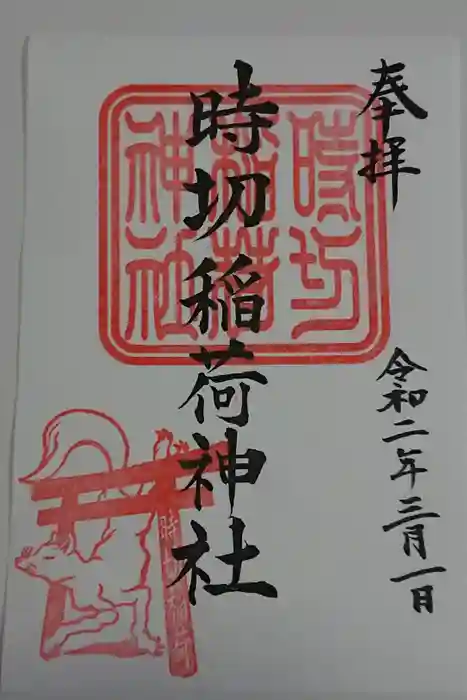 奉拝
令和二年三月一日
時切稲荷神社
時切
稲荷
神社
時切稲荷